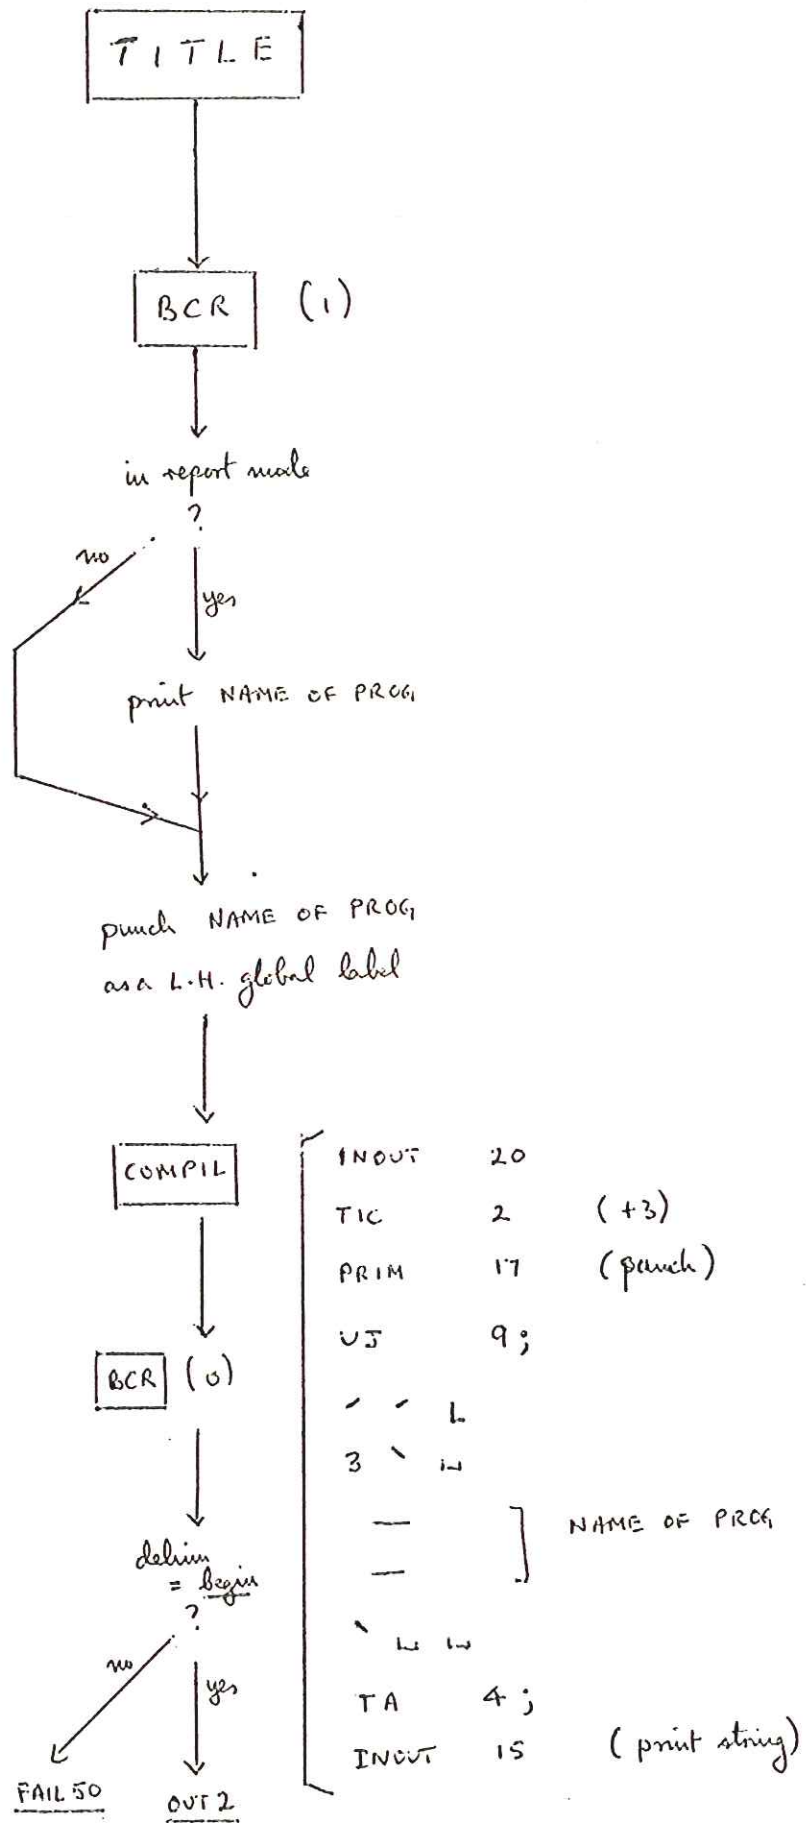 TITLE
BCR (1)
in report mode
?
no
yes
print NAME OF PROG
punch NAME OF PROG
as a L.H. global label
COMPIL
BCR (0)
delim
= begin
?
no
yes
FAIL 50
OUT 2
INOUT 20
TIC 2 (+3)
PRIM 17 (punch)
UJ 9;
L
3
NAME OF PROG
TA 4;
INOUT 15 (print string)